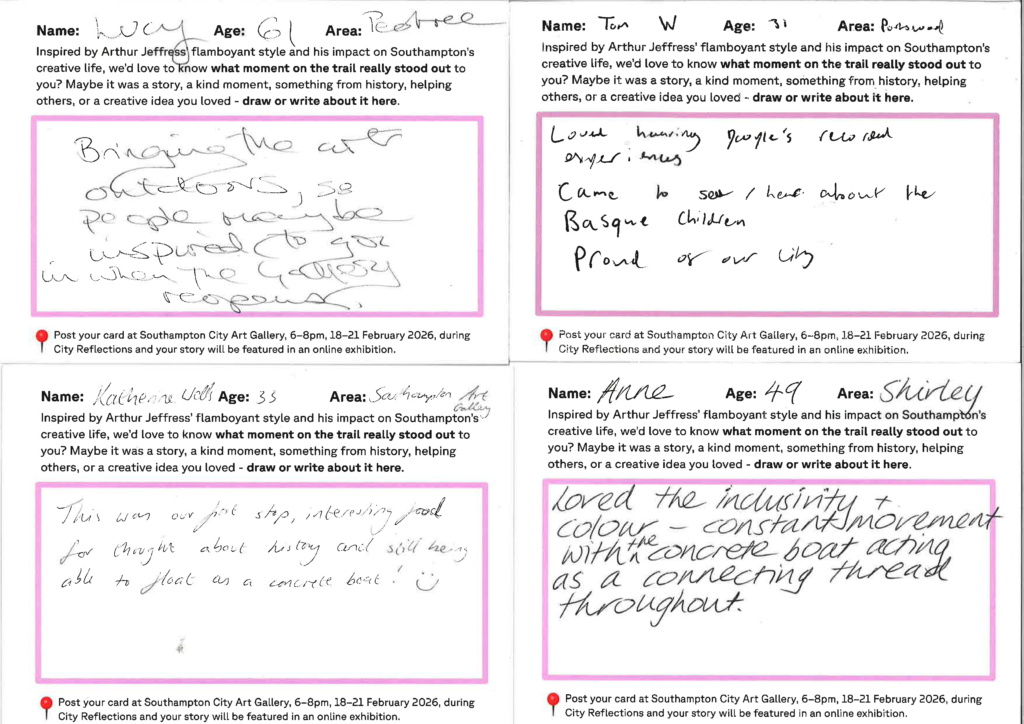 Name: Lucy Age: 61 Area: Peartree
Inspired by Arthur Jeffress' flamboyant style and his impact on Southampton's
creative life, we'd love to know what moment on the trail really stood out to
you? Maybe it was a story, a kind moment, something from history, helping
others, or a creative idea you loved - draw or write about it here.
Bringing the art
outdoors, so
people maybe
inspired to go
in when the Gallery
reopens.
Post your card at Southampton City Art Gallery, 6–8pm, 18–21 February 2026, during
City Reflections and your story will be featured in an online exhibition.
Name: Tom W Age: 31 Area: Portswood
Inspired by Arthur Jeffress' flamboyant style and his impact on Southampton's
creative life, we'd love to know what moment on the trail really stood out to
you? Maybe it was a story, a kind moment, something from history, helping
others, or a creative idea you loved - draw or write about it here.
Loved hearing people's recorded
experiences
Came to see / hear about the
Basque Children
Proud of our city
Post your card at Southampton City Art Gallery, 6–8pm, 18–21 February 2026, during
City Reflections and your story will be featured in an online exhibition.
Name: Katherine Wells Age: 33 Area: Southampton Art
Gallery
Inspired by Arthur Jeffress' flamboyant style and his impact on Southampton's
creative life, we'd love to know what moment on the trail really stood out to
you? Maybe it was a story, a kind moment, something from history, helping
others, or a creative idea you loved - draw or write about it here.
This was our first stop, interesting food
for thought about history and still being
able to float as a concrete boat!
Post your card at Southampton City Art Gallery, 6–8pm, 18–21 February 2026, during
City Reflections and your story will be featured in an online exhibition.
Name: Anne Age: 49 Area: Shirley
Inspired by Arthur Jeffress' flamboyant style and his impact on Southampton's
creative life, we'd love to know what moment on the trail really stood out to
you? Maybe it was a story, a kind moment, something from history, helping
others, or a creative idea you loved - draw or write about it here.
Loved the inclusivity +
colour – constant movement
with the concrete boat acting
as a connecting thread
throughout.
Post your card at Southampton City Art Gallery, 6–8pm, 18–21 February 2026, during
City Reflections and your story will be featured in an online exhibition.